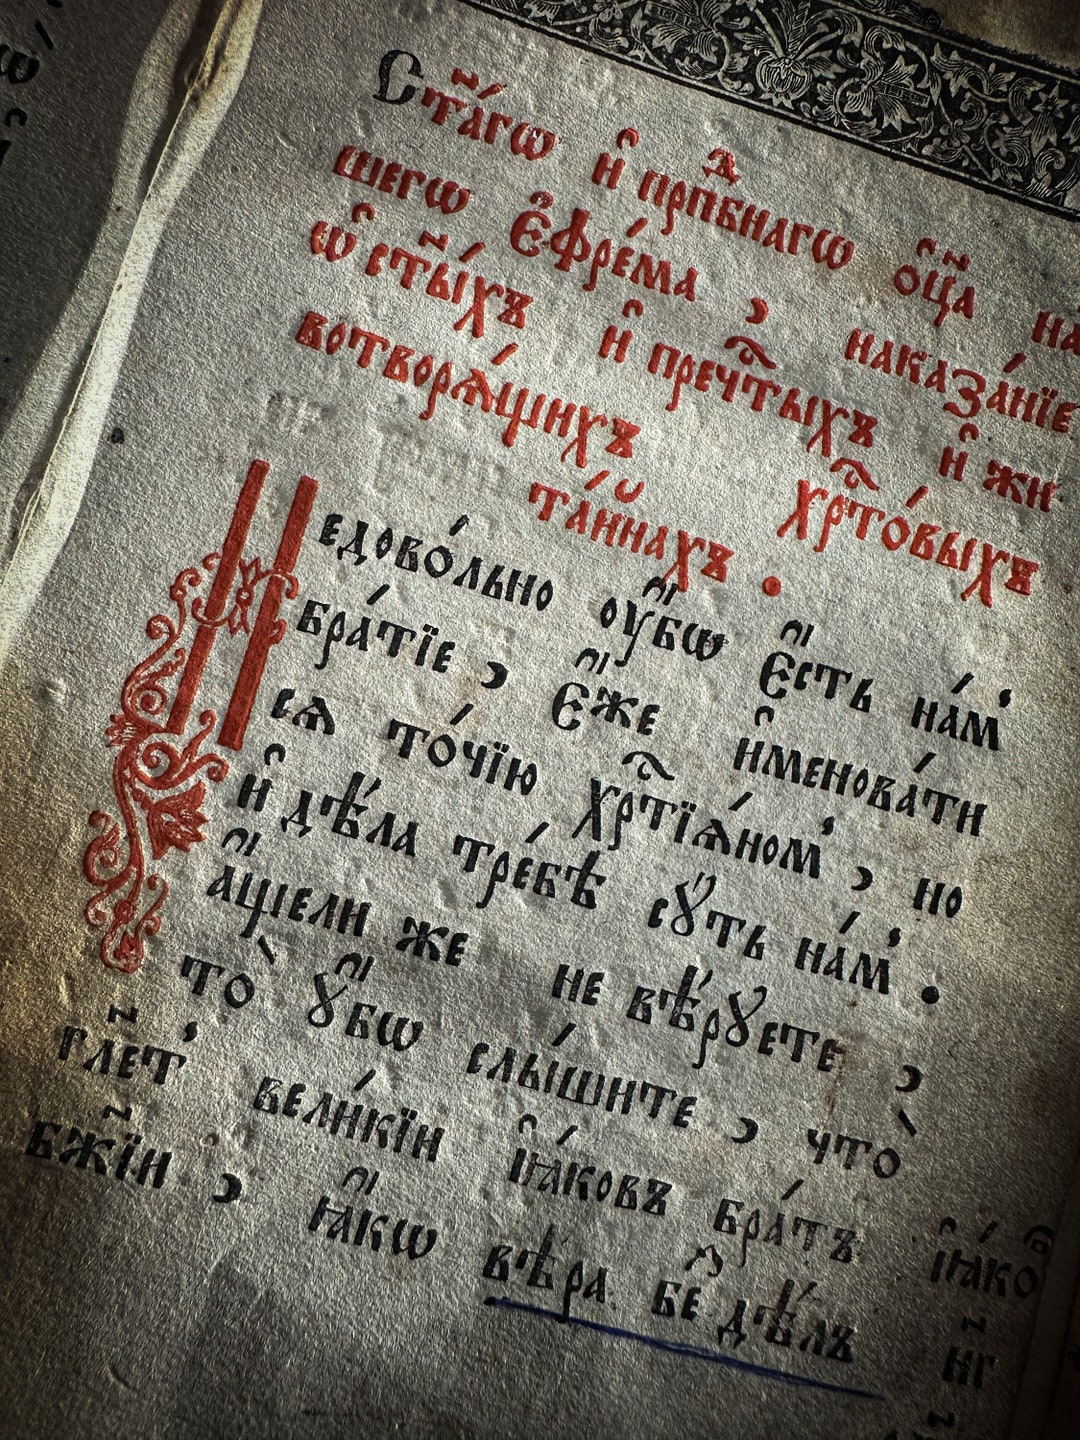 Ст҃а́гѡ и҆ прпⷣбнагѡ ѻ҆ц҃а на
шегѡ є҆фре́ма , наказа́нїе
ѡ҆ ст҃ы́хъ и҆ пречⷭ҇тыхъ и҆ жи
вотворѧ́щихъ хрⷭ҇то́выхъ
та́йнахъ .
Недово́льно ᲂу҆́бѡ є҆́сть на́м̾
бра́тїе , є҆́же и҆менова́ти
сѧ то́чїю хрⷭ҇тїѧ́ном̾ , но
и҆ дѣ́ла тре́бѣ сꙋ́ть на́м̾ .
а҆́щели же не вѣ́рꙋете ,
то̀ ꙋ҆́бѡ слы́шите , что̀
гл҃ет̾ вели́кїй і҆а́ковъ бра́тъ
бж҃їй , ꙗ҆́кѡ вѣ́ра беⷥ дѣ́лъ